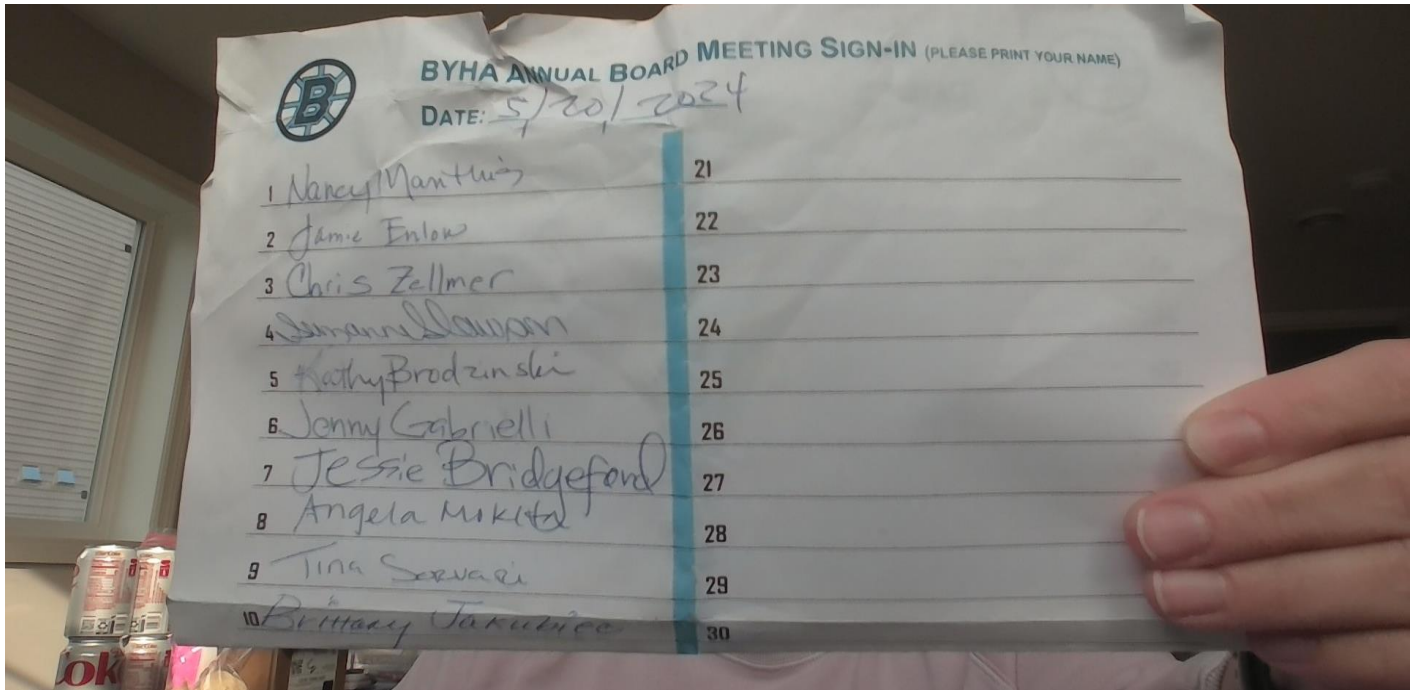 B
BYHA ANNUAL BOARD MEETING SIGN-IN (PLEASE PRINT YOUR NAME)
DATE: 5/20/2024
1 Nancy Manthis
2 Jamie Enlow
3 Chris Zellmer
4 Suzanne Slawson
5 Kathy Brodzinski
6 Jenny Gabrielli
7 Jessie Bridgeford
8 Angela Mokita
9 Tina
10 Brittany Jakubiec
21
22
23
24
25
26
27
28
29
30